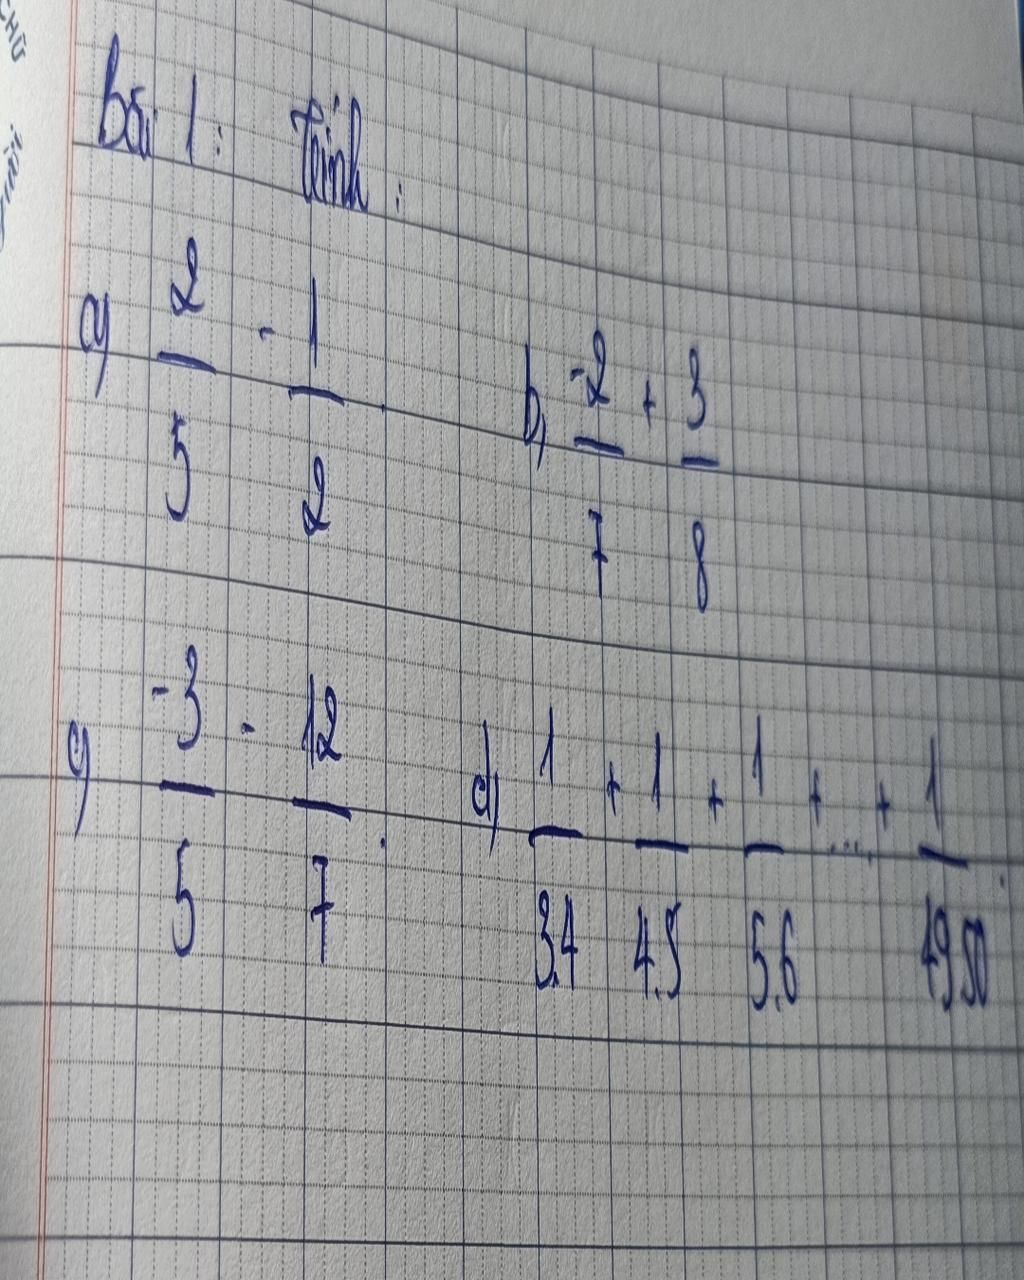 CHỮ
bài 1: Tính:
a) 2/5 - 1/2 .
b, -2/7 + 3/8
c) -3/5 - 12/7 .
d) 1/3.4 + 1/4.5 + 1/5.6 + ... + 1/49.50 .